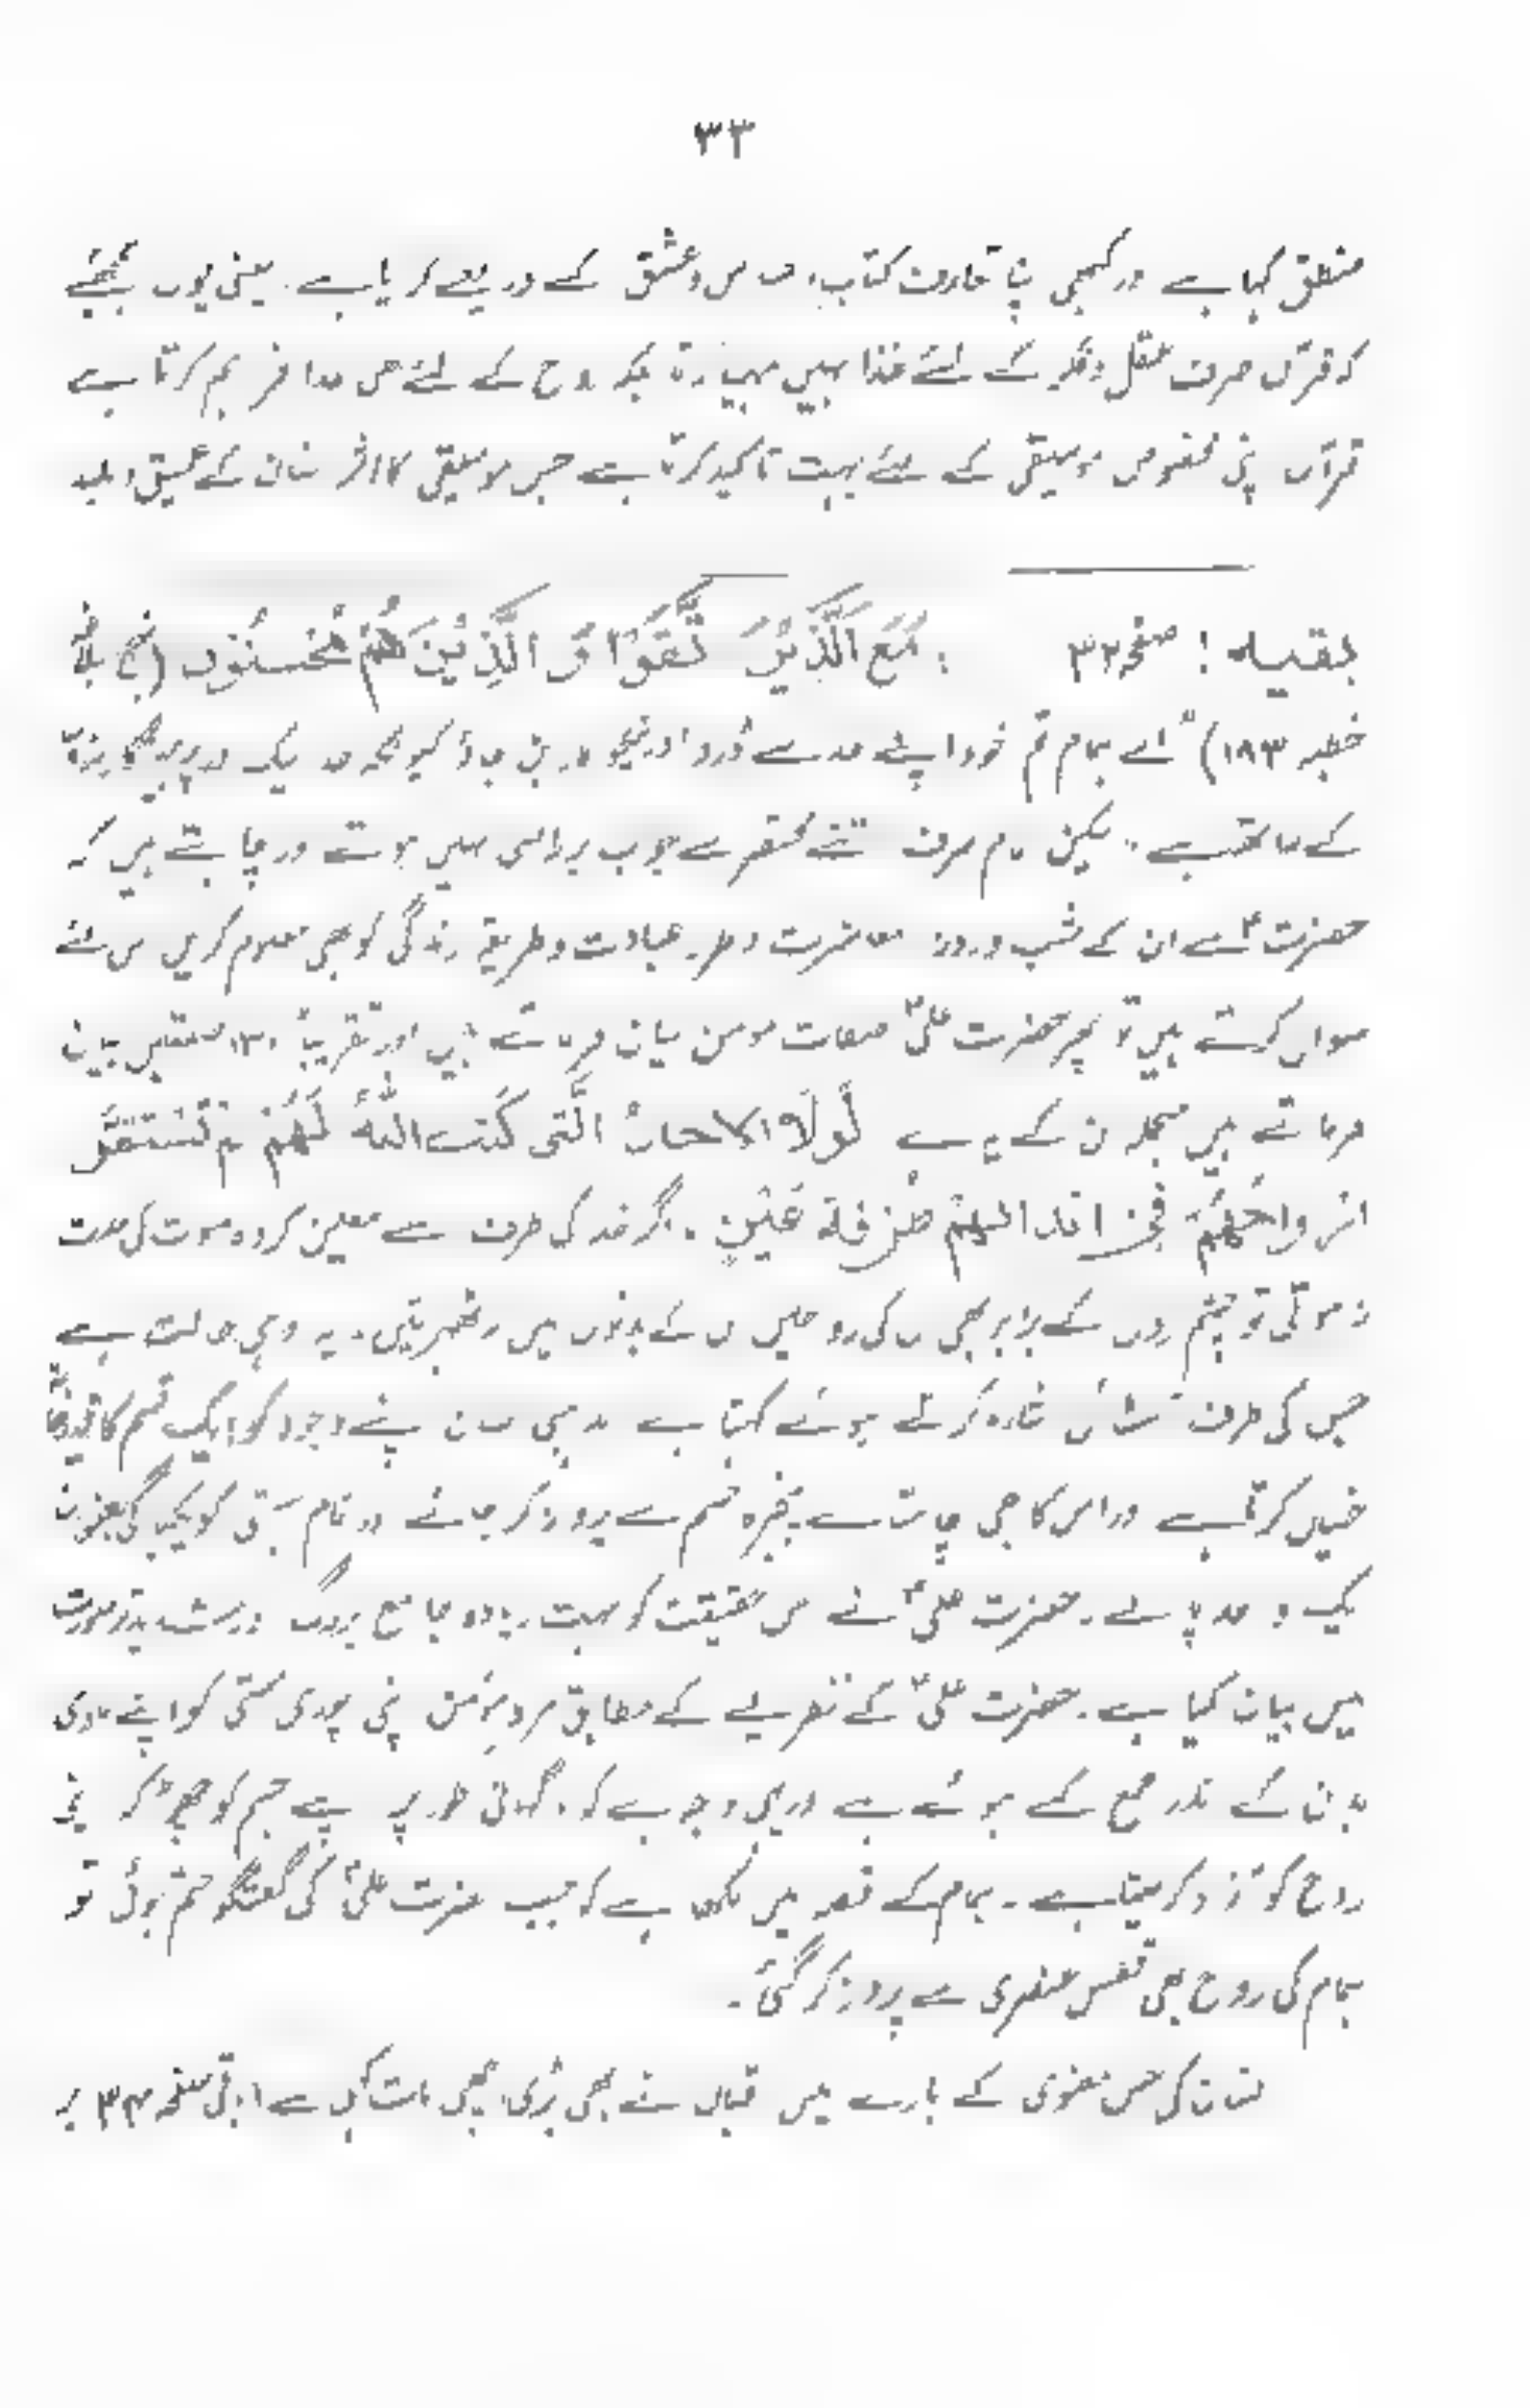 ۳۳
منطق کہا ہے اور کبھی اپنا تعارف کتاب احساس و عشق کے ذریعے کرایا ہے۔ یعنی یوں سمجھئے
کہ قرآن صرف عقل و فکر کے لئے غذا نہیں مہیا کرتا بلکہ روح کے لئے بھی غذا فراہم کرتا ہے
قرآن اپنی مخصوص موسیقی کے لئے بہت تاکید کرتا ہے جس موسیقی کا اثر انسان کے عمیق و بلند
بقیہ: صفحہ ۳۲ مَعَ الَّذِيْنَ اتَّقَوْا وَّ الَّذِيْنَ هُمْ مُّحْسِنُوْن (نہج البلاغہ
خطبہ ۱۸۳) "اے ہمام تم خود اپنے خدا سے ڈرو اور نیکوکار بن جاؤ کیونکہ خدا نیک اور پرہیزگار بندوں
کے ساتھ ہے"۔ لیکن ہمام صرف اتنے مختصر سے جواب پر راضی نہیں ہوتے اور چاہتے ہیں کہ
حضرتؑ سے ان کے شب و روز، معاشرت و طرز عبادت و طریقہ زندگی کو بھی معلوم کریں اس لئے
سوال کرتے ہیں تو پھر حضرت علیؑ صفات مومن بیان فرماتے ہیں اور تقریباً ۱۳۰ صفتیں بیان
فرماتے ہیں منجملہ ان کے یہ ہے لَوْلَا الاٰجَالُ الَّتِی کَتَبَ اللّٰهُ لَهُمْ لَمْ تَسْتَقِرَّ
اَرْوَاحُهُمْ فِیْ اَجْسَادِهِمْ طَرْفَةَ عَیْنٍ۔ اگر خدا کی طرف سے معین کردہ موت کی مدت
نہ ہوتی تو چشم زدن کے برابر بھی ان کی روحیں ان کے بدنوں میں نہ ٹھہرتیں۔ یہ وہی حالت ہے
جس کی طرف اشارہ کرتے ہوئے کہتا ہے مذہبی انسان اپنے وجود کو ایک قسم کا قیدخانہ
خیال کرتا ہے اور اس کا جی چاہتا ہے پنجرہ جسم سے پرواز کر جائے اور تمام ہستی کو یکبارگی بعنوان
ایک واحد پالے۔ حضرت علیؑ نے اس حقیقت کو بہت زیادہ جامع بزرگ
میں بیان کیا ہے۔ حضرت علیؑ کے نظریے کے مطابق مرد مؤمن اپنی پوری ہستی کو اپنے مادی
بدن کے اندر جمع کئے ہوئے ہے اور یہی وجہ ہے کہ ناگہانی طور پر اپنے جسم کو چھوڑ کر اپنی
روح کو آزاد کر لیتا ہے۔ ہمام کے قصہ میں لکھا ہے کہ جب حضرت علیؑ کی گفتگو ختم ہوئی تو
ہمام کی روح بھی قفس عنصری سے پرواز کر گئی۔
انسان کی حس معنوی کے بارے میں اقبال نے بھی بڑی اچھی بات کہی ہے (باقی صفحہ ۳۴ پر